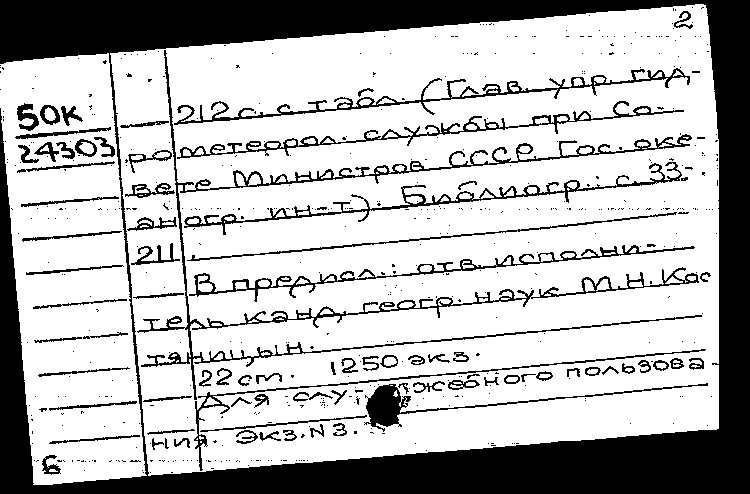 2
50к
24303
212 с. с табл. (Глав. упр. гид-
рометеорол. службы при Со-
вете Министров СССР. Гос. оке-
аногр. ин-т). Библиогр.: с. 33-
211.
В предисл.: отв. исполни-
тель канд. геогр. наук М.Н. Кос
тяницын.
22 cm. 1250 экз.
Для слу- жебного пользова-
ния. Экз. N 3.
6